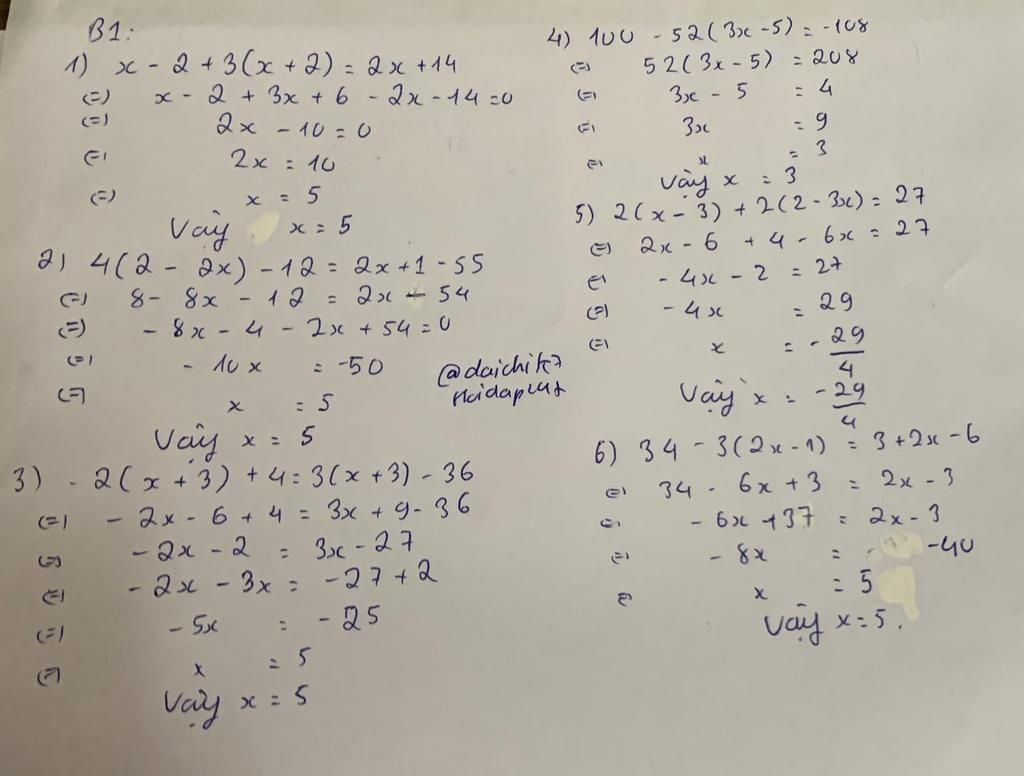 B1:
1) x - 2 + 3(x + 2) = 2x + 14
(=) x - 2 + 3x + 6 - 2x - 14 = 0
(=) 2x - 10 = 0
(=) 2x = 10
(=) x = 5
Vậy x = 5
2) 4(2 - 2x) - 12 = 2x + 1 - 55
(=) 8 - 8x - 12 = 2x - 54
(=) - 8x - 4 - 2x + 54 = 0
(=) - 10x = -50
(=) x = 5
Vậy x = 5
3) - 2(x + 3) + 4 = 3(x + 3) - 36
(=) - 2x - 6 + 4 = 3x + 9 - 36
(=) - 2x - 2 = 3x - 27
(=) - 2x - 3x = - 27 + 2
(=) - 5x = - 25
(=) x = 5
Vậy x = 5
@daichik7
4) 100 - 52(3x - 5) = -108
(=) 52(3x - 5) = 208
(=) 3x - 5 = 4
(=) 3x = 9
(=) x = 3
Vậy x = 3
5) 2(x - 3) + 2(2 - 3x) = 27
(=) 2x - 6 + 4 - 6x = 27
(=) - 4x - 2 = 27
(=) - 4x = 29
(=) x = - 29/4
Vậy x = - 29/4
6) 34 - 3(2x - 1) = 3 + 2x - 6
(=) 34 - 6x + 3 = 2x - 3
(=) - 6x + 37 = 2x - 3
(=) - 8x = -40
(=) x = 5
Vậy x = 5.